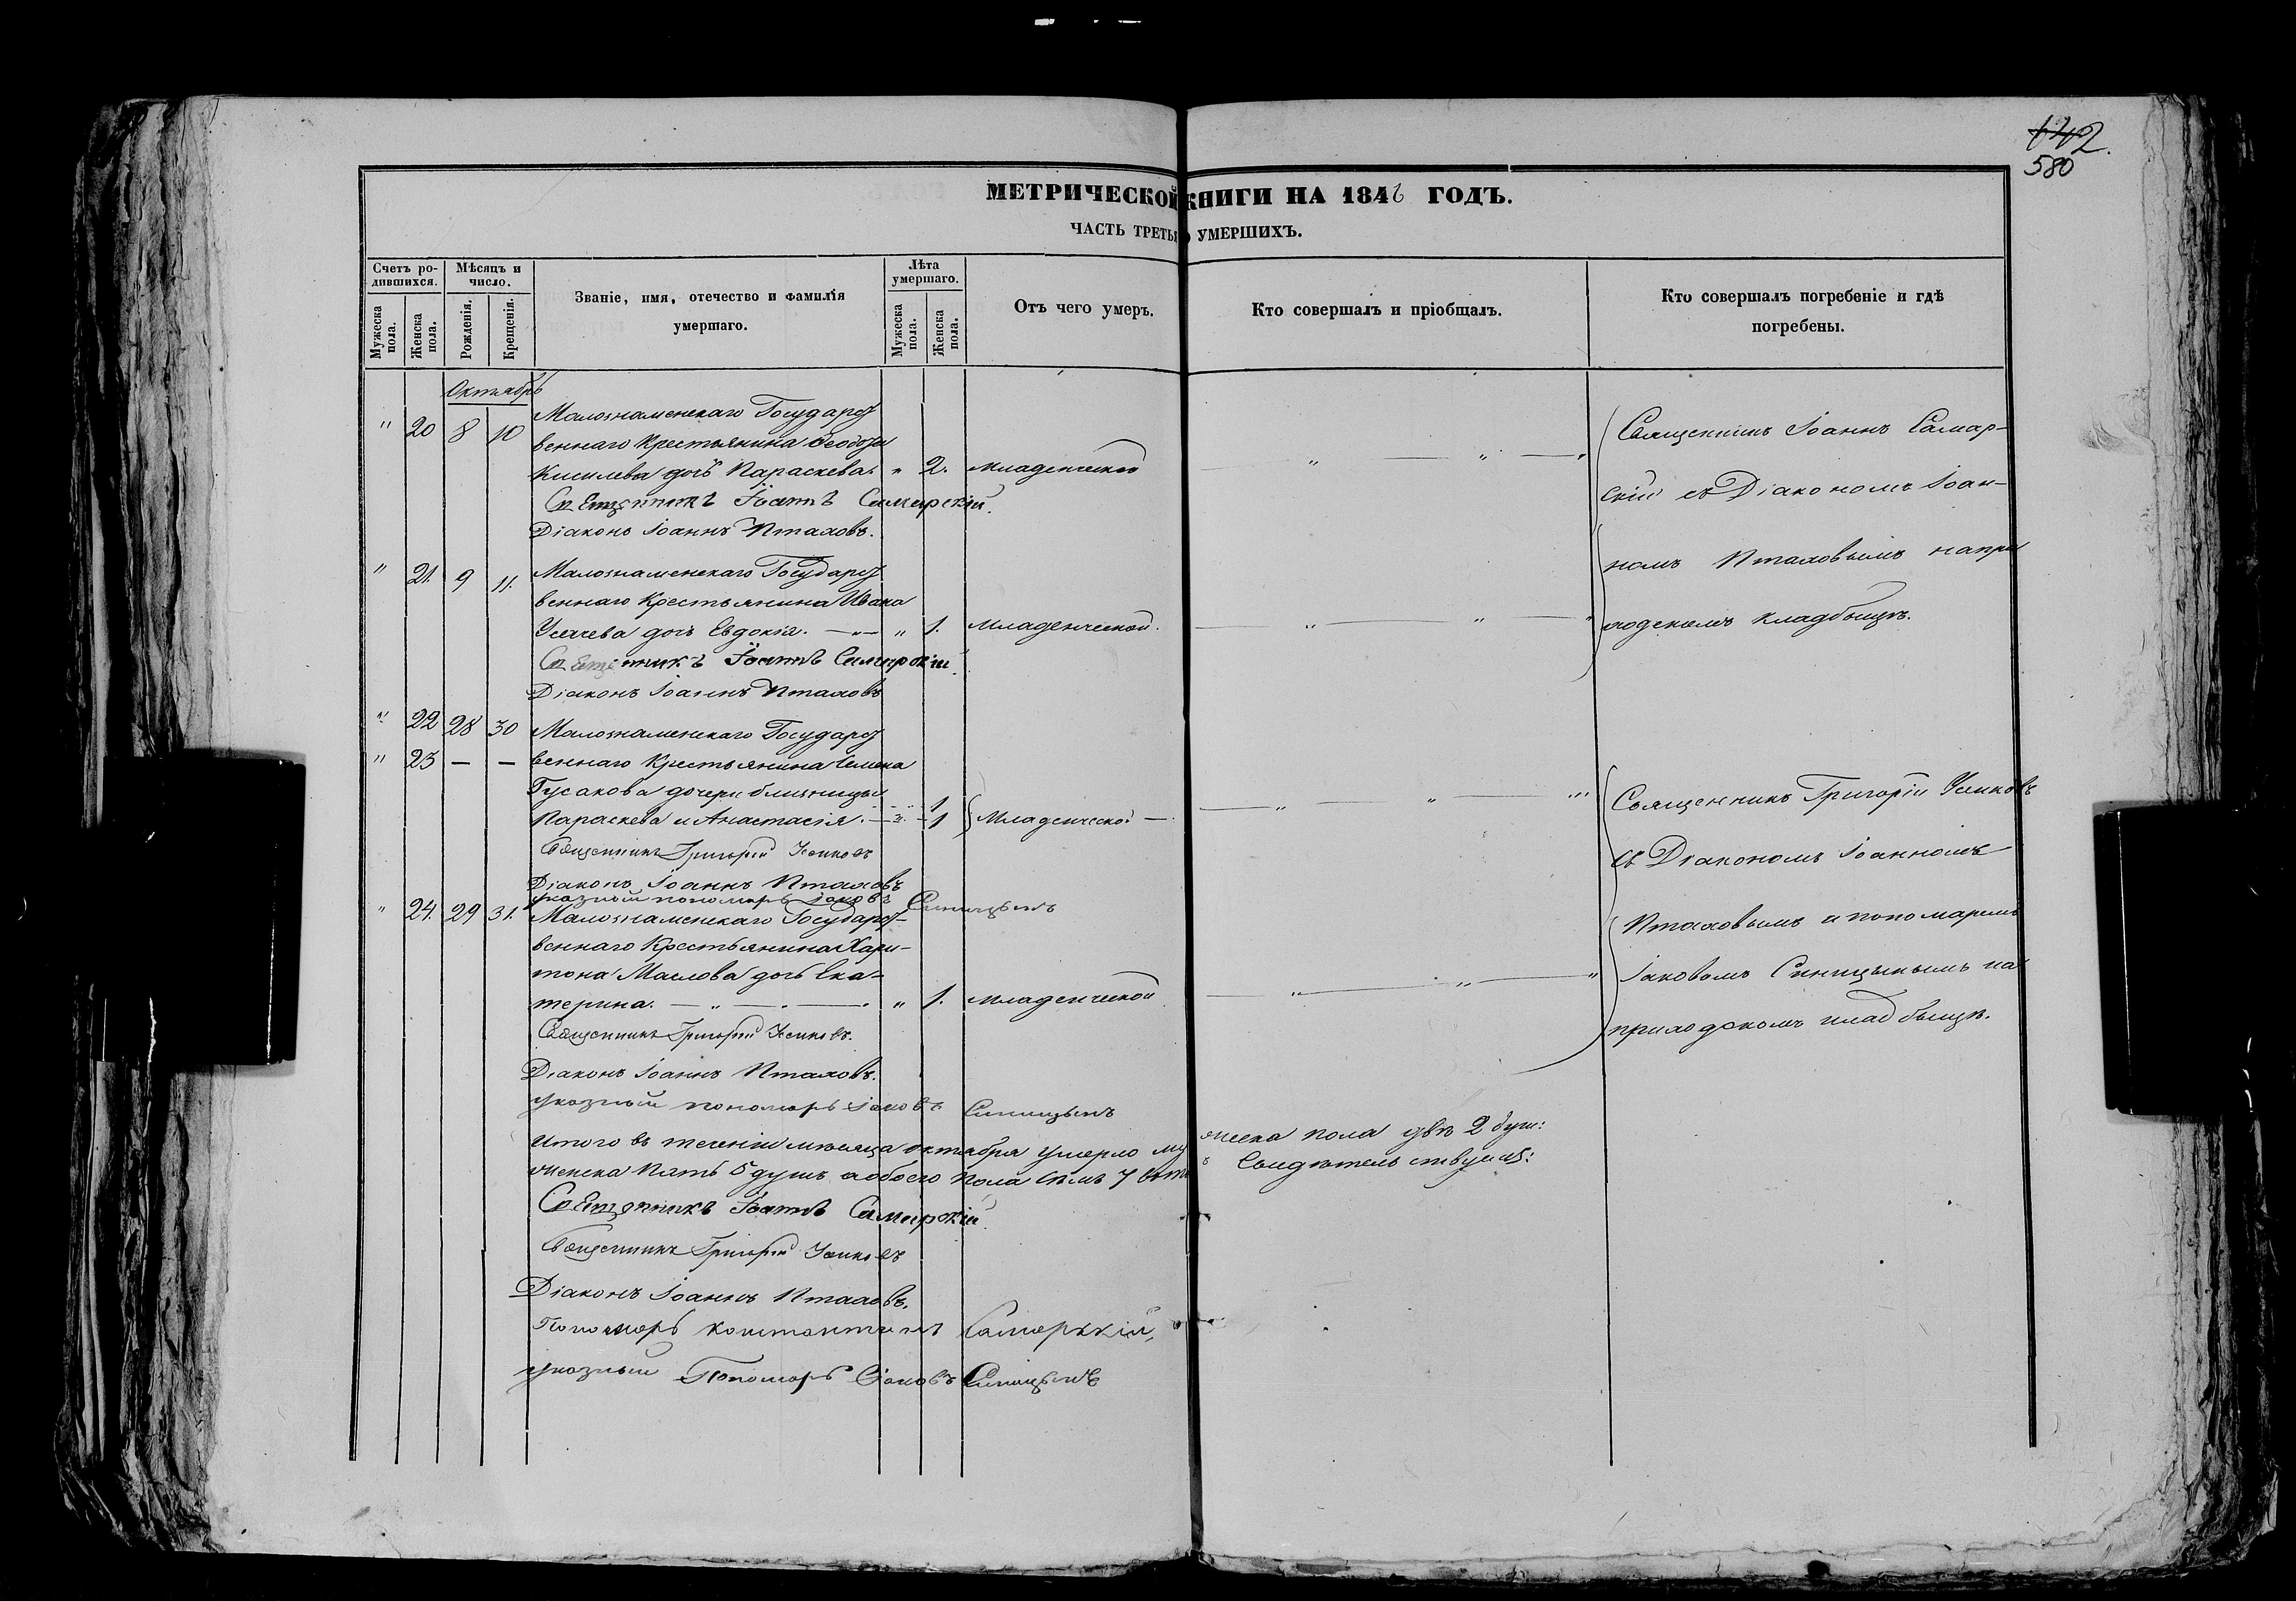 142.
580
МЕТРИЧЕСКОЙ КНИГИ НА 1846 ГОДЪ.
ЧАСТЬ ТРЕТЬЯ УМЕРШИХЪ.
Счетъ ро-
дившихся.
Мужеска пола.
Женска пола.
Мѣсяцъ и
число.
Рожденія.
Крещенія.
Званіе, имя, отечество и фамилія
умершаго.
Лѣта
умершаго.
Мужеска пола.
Женска пола.
Отъ чего умеръ.
Кто совершалъ и пріобщалъ.
Кто совершалъ погребеніе и гдѣ
погребены.
Октябрь
Малознаменскаго Государст
" 20 8 10 веннаго Крестьянина Ѳеодора
Кисилева дочь Параскева. " 2. младенческой
Священникъ Іоаннъ Самарскій.
Діаконъ Іоаннъ Птаховъ.
Священникъ Іоаннъ Самар-
скій съ Діакономъ Іоан-
номъ Птаховымъ на при
ходскомъ кладбищѣ.
" 21. 9 11. Малознаменскаго Государст
веннаго Крестьянина Ивана
Усачева дочь Евдокія. " 1. младенческой.
Священникъ Іоаннъ Самарскій.
Діаконъ Іоаннъ Птаховъ
" 22 28 30 Малознаменскаго Государст
" 23 — — веннаго Крестьянина Семена
Гусакова дочери близницы 1
Параскева и Анастасія. 1 Младенческой
Священникъ Григорій
Діаконъ Іоаннъ Птаховъ
указный пономарь Іаковъ Синицынъ
Священникъ Григорій
съ Діакономъ Іоанномъ
Птаховымъ и пономаремъ
Іаковомъ Синицынымъ на
приходскомъ кладбищѣ.
" 24. 29 31. Малознаменскаго Государст-
веннаго Крестьянина Хари-
тона Маслова дочь Ека-
терина. " 1. младенческой
Священникъ Григорій
Діаконъ Іоаннъ Птаховъ.
указный пономарь Іаковъ Синицынъ
Итого въ теченіи мѣсяца октября умерло мужеска пола двѣ 2 душ:
женска пять 5 душъ а обоего пола семь 7 Свидѣтельствуемъ:
Священникъ Іоаннъ Самарскій.
Священникъ Григорій
Діаконъ Іоаннъ Птаховъ.
Пономарь Константинъ Самарскій,
указный Пономарь Іаковъ Синицынъ